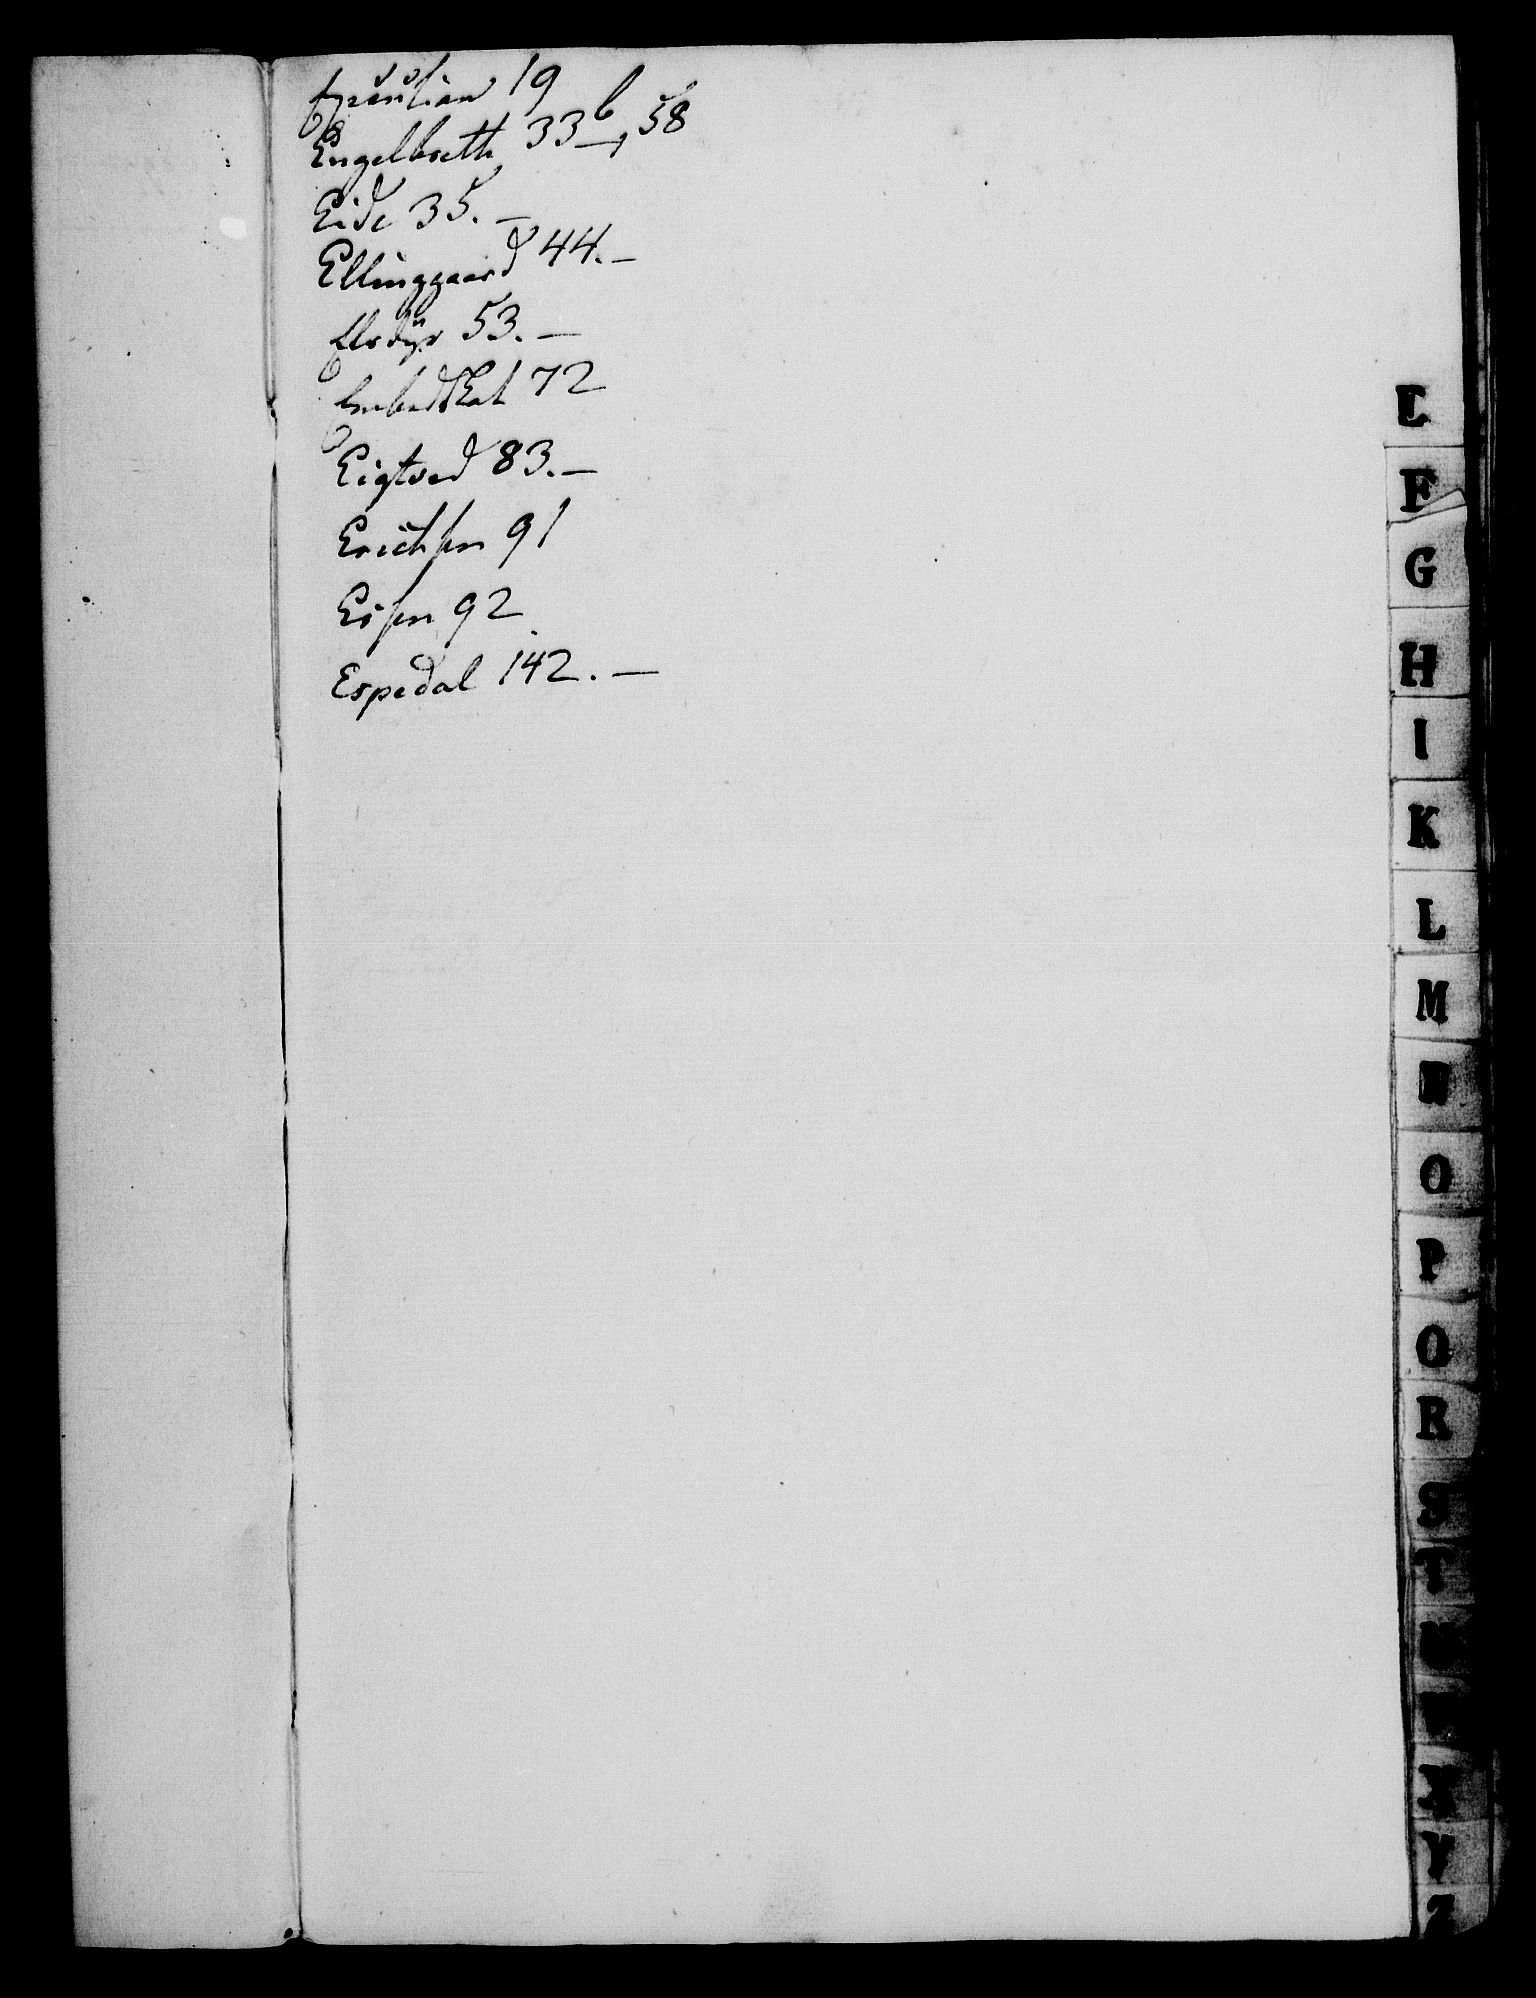 Execution 19
Engelbreth 33b, 58
Eide 35. –
Ellinggaard 44. –
Elsdyr 53. –
Embedskat 72
Eigtved 83. –
Erichsen 91
Eisen 92
Espedal 142. –
E
F
G
H
I
K
L
M
N
O
P
Q
R
S
T
Y
Z